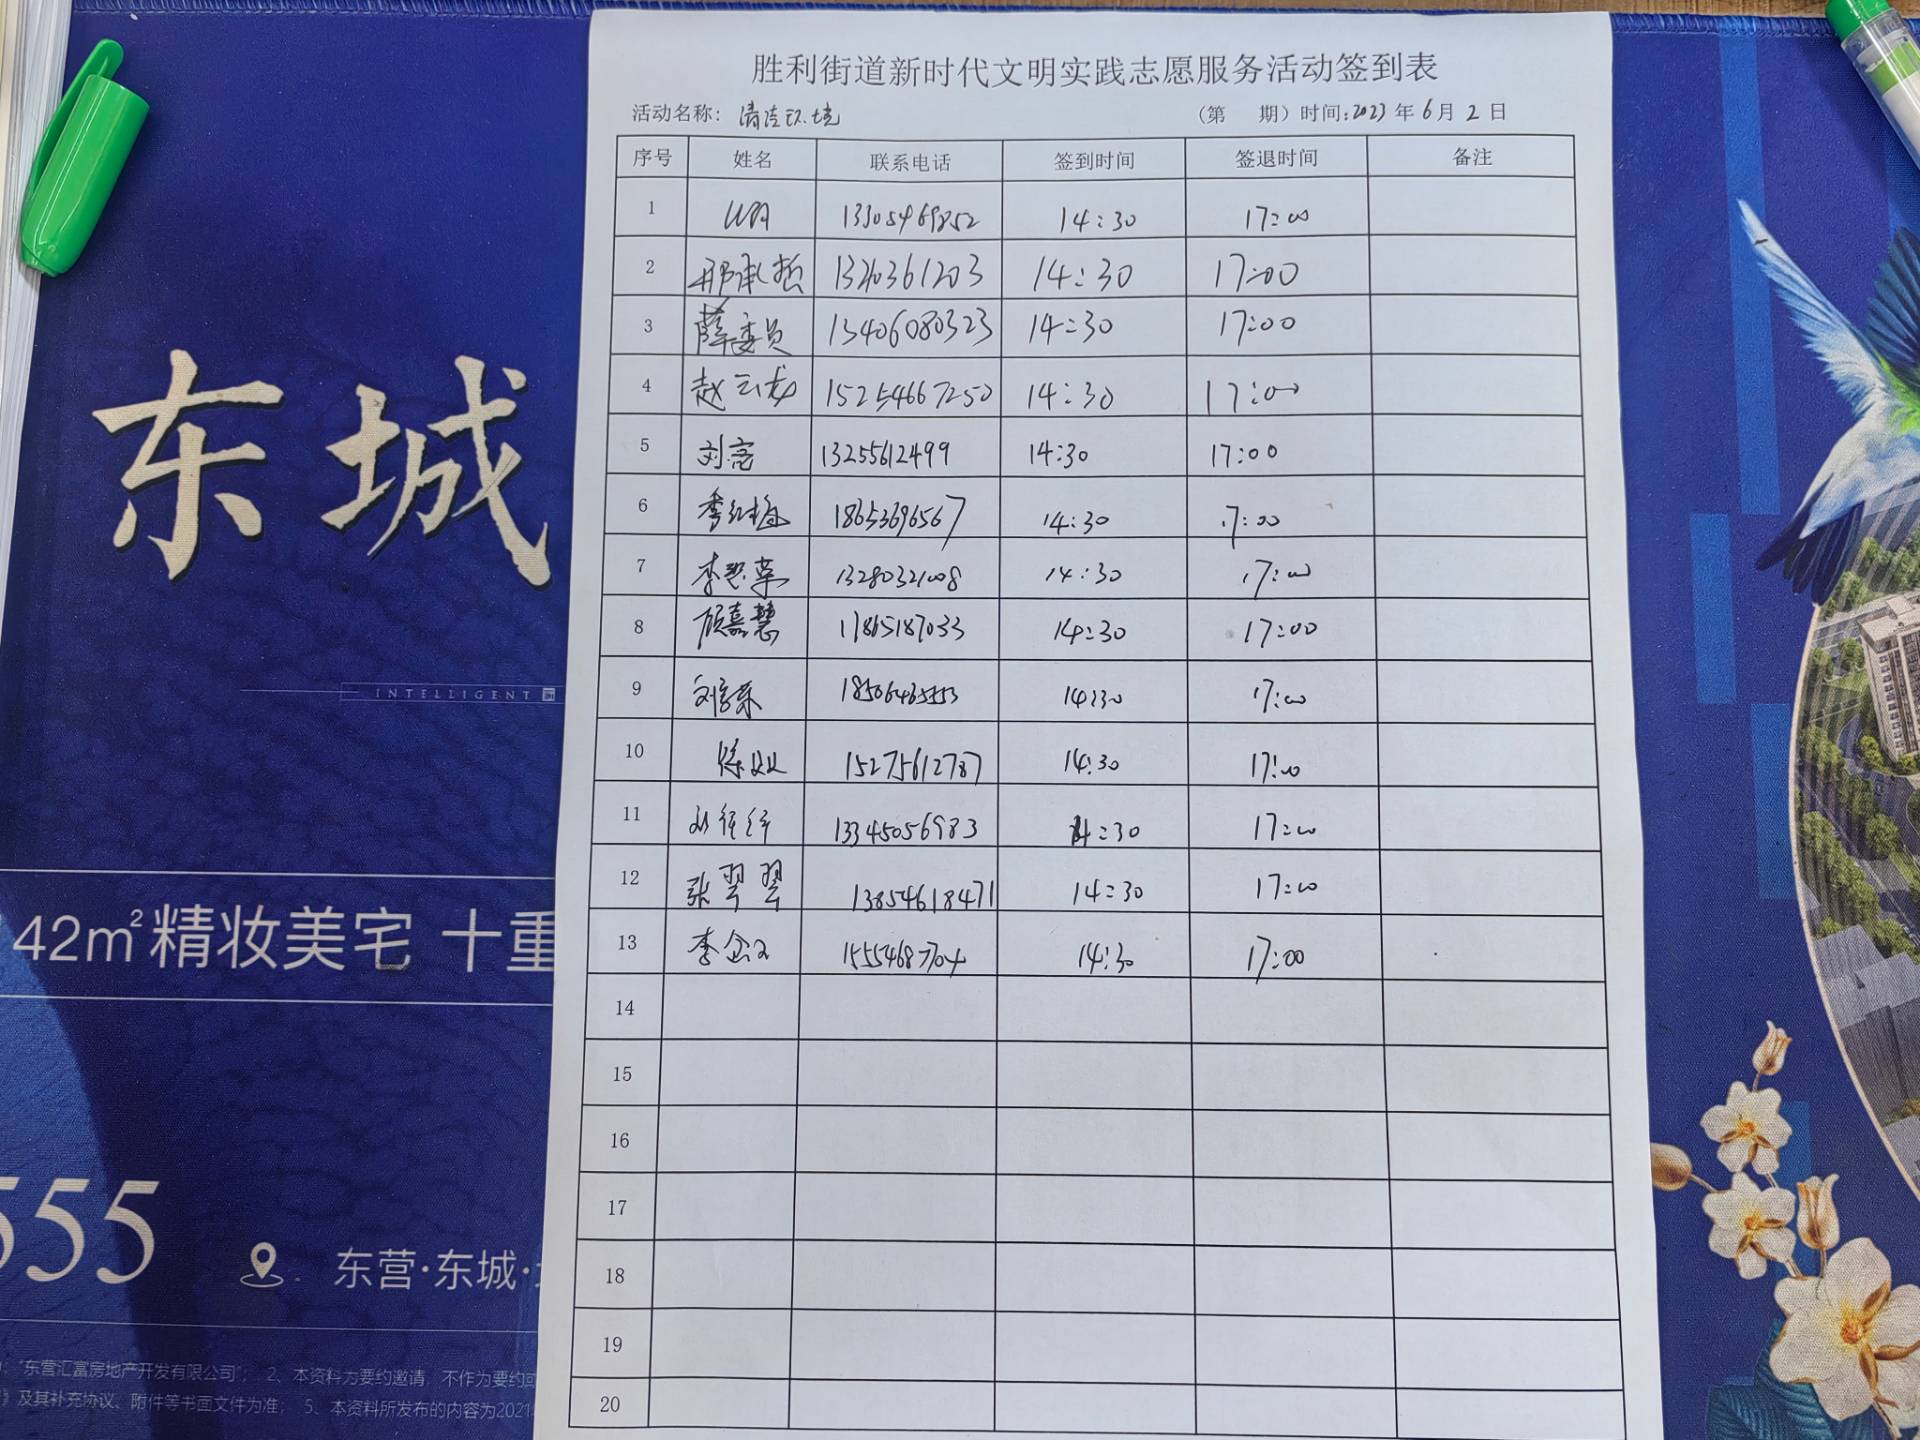 胜利街道新时代文明实践志愿服务活动签到表
活动名称：清洁环境 （第 期）时间：2023年6月2日
序号 姓名 联系电话 签到时间 签退时间 备注
1 13305469852 14:30 17:00
2 邢承哲 1320361203 14:30 17:00
3 薛委员 13406080323 14:30 17:00
4 赵云龙 15254667250 14:30 17:00
5 刘亮 13255612499 14:30 17:00
6 季红梅 18653696567 14:30 17:00
7 14:30 17:00
8 顾嘉慧 17865187033 14:30 17:00
9 14:30 17:00
10 15275612787 14:30 17:00
11 13345056983 14:30 17:00
12 张翠翠 13854618471 14:30 17:00
13 李 15554687704 14:30 17:00
14
15
16
17
18
19
20
东城
INTELLIGENT
42m²精妆美宅 十重
555
东营·东城·
“东营汇富房地产开发有限公司”； 2、本资料为要约邀请，不作为要约
及其补充协议、附件等书面文件为准； 5、本资料所发布的内容为2021